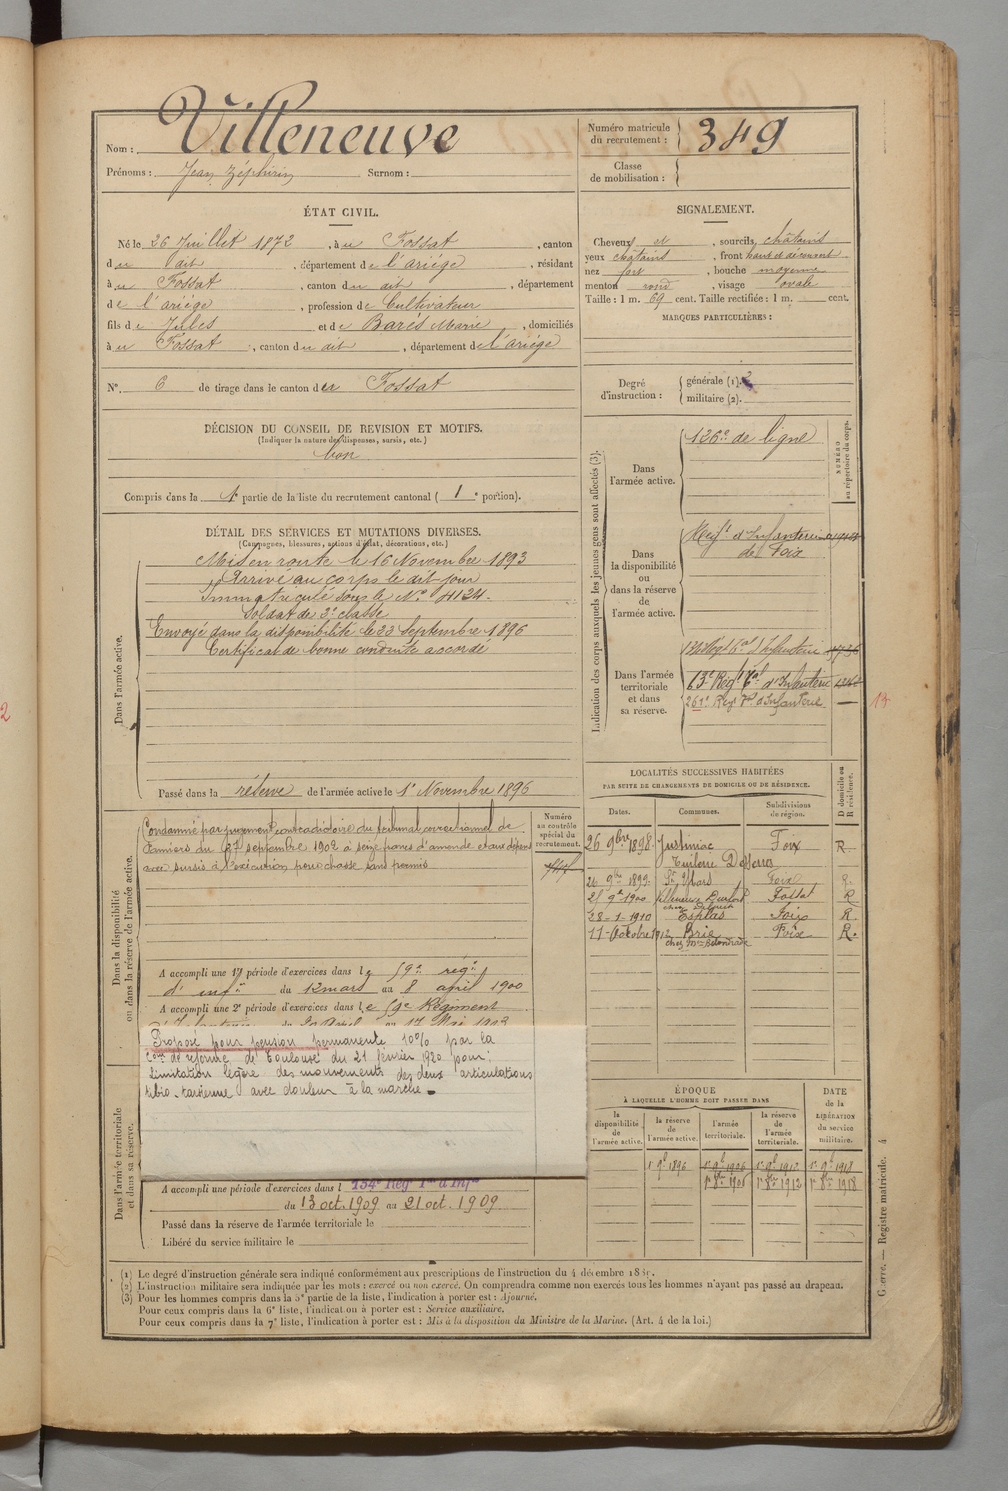 Nom : Villeneuve
Prénoms : Jean Zéphirin Surnom :
Numéro matricule du recrutement : 349
Classe de mobilisation :
ÉTAT CIVIL.
Né le 26 Juillet 1872, à u Fossat, canton
d u dit, département d e l'ariége, résidant
à u Fossat, canton d u dit, département
d e l'ariége, profession d e Cultivateur
fils d e Jules et d e Barés Marie, domiciliés
à u Fossat, canton d u dit, département d e l'ariége
N° 6 de tirage dans le canton d u Fossat
SIGNALEMENT.
Cheveux et, sourcils châtains
yeux châtains, front haut et découvert
nez fort, bouche moyenne
menton rond, visage ovale
Taille : 1 m. 69 cent. Taille rectifiée : 1 m. cent.
MARQUES PARTICULIÈRES :
Degré d'instruction : générale (1). 2
militaire (2).
DÉCISION DU CONSEIL DE REVISION ET MOTIFS.
(Indiquer la nature des dispenses, sursis, etc.)
bon
Compris dans la 1e partie de la liste du recrutement cantonal ( 1e portion).
DÉTAIL DES SERVICES ET MUTATIONS DIVERSES.
(Campagnes, blessures, actions d'éclat, décorations, etc.)
Dans l'armée active.
Mis en route le 16 Novembre 1893
Arrivé au corps le dit jour
Immatriculé sous le N° 4124
Soldat de 2e classe
Envoyé dans la disponibilité le 22 Septembre 1896
Certificat de bonne conduite accordé
Passé dans la réserve de l'armée active le 1er Novembre 1896
Indication des corps auxquels les jeunes gens sont affectés (3).
NUMÉRO au répertoire du corps.
Dans l'armée active.
126e de ligne
Dans la disponibilité ou dans la réserve de l'armée active.
Regt d'Infanterie
de Foix
Dans l'armée territoriale et dans sa réserve.
Regt Tal d'Infanterie
Régt Tal d'Infanterie
Regt Tal d'Infanterie
LOCALITÉS SUCCESSIVES HABITÉES
PAR SUITE DE CHANGEMENTS DE DOMICILE OU DE RÉSIDENCE.
Dates. Communes. Subdivisions de région. D domicile ou R résidence.
26 9bre 1898 Justiniac Foix R
26 9bre 1899 St Ybars Foix R
1900 Villeneuve Durfort Fossat R
28-1-1910 Esplas Foix R.
11 Octobre 1912 Brie Foix R.
Dans la disponibilité ou dans la réserve de l'armée active.
Numéro au contrôle spécial du recrutement.
Condamné par jugement contradictoire du tribunal correctionnel de
Pamiers du 27 septembre 1902 à seize francs d'amende et aux dépens
avec sursis à l'exécution pour chasse sans permis
A accompli une 1re période d'exercices dans le 59e rég.t
d'inf.ie du 12 mars au 8 avril 1900
A accompli une 2e période d'exercices dans le 59e Régiment
Proposé pour pension permanente 10% par la
Con de réforme de Toulouse du 21 février 1920 pour :
Limitation légère des mouvements des deux articulations
tibio-tarsienne avec douleur à la marche.
Dans l'armée territoriale et dans sa réserve.
A accompli une période d'exercices dans l 134e Régt Tal d'Infie
du 13 oct. 1909 au 21 oct. 1909
Passé dans la réserve de l'armée territoriale le
Libéré du service militaire le
ÉPOQUE
À LAQUELLE L'HOMME DOIT PASSER DANS
la disponibilité de l'armée active. la réserve de l'armée active. l'armée territoriale. la réserve de l'armée territoriale. DATE de la LIBÉRATION du service militaire.
1er 9b 1896 1er 9b 1906 1er 9b 1912 1er 9b 1918
1er 8bre 1906 1er 8bre 1912 1er 8bre 1918
(1) Le degré d'instruction générale sera indiqué conformément aux prescriptions de l'instruction du 4 décembre
(2) L'instruction militaire sera indiquée par les mots : exercé ou non exercé. On comprendra comme non exercés tous les hommes n'ayant pas passé au drapeau.
(3) Pour les hommes compris dans la 5e partie de la liste, l'indication à porter est : Ajourné.
Pour ceux compris dans la 6e liste, l'indication à porter est : Service auxiliaire.
Pour ceux compris dans la 7e liste, l'indication à porter est : Mis à la disposition du Ministre de la Marine. (Art. 4 de la loi.)
Guerre. — Registre matricule. 4